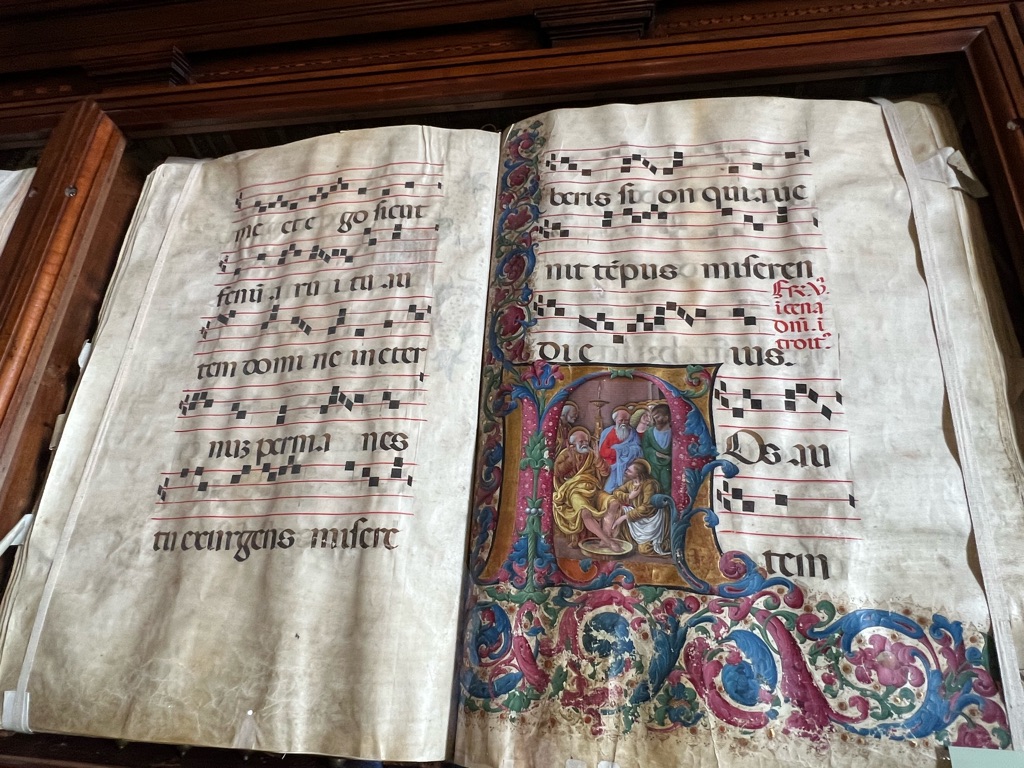 me et e go sicut
fenũ a ru i tu au
tem domi ne in eter
nuz perma nes
tu exurgens misere
beris si on quia ue
nit tẽpus miseren
Fr. V.
i cena
dñi. i
troit.
di e ius.
NOs au
tem